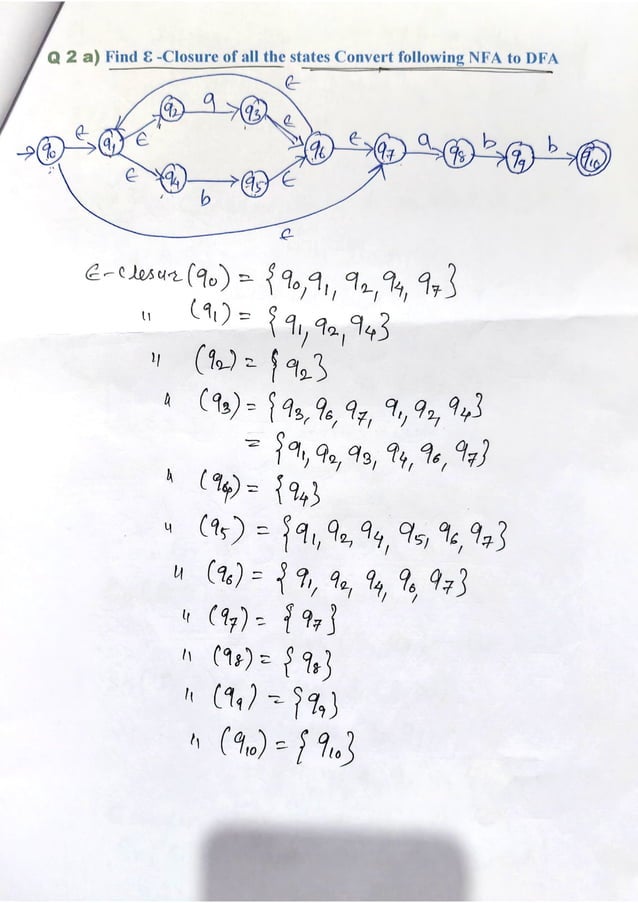 Q 2 a) Find Ɛ -Closure of all the states Convert following NFA to DFA
ϵ
q2 a q3
ϵ ϵ
q0 ϵ q1 q6 ϵ q7 a q8 b q9 b q10
ϵ q4 b q5 ϵ
ϵ
ϵ-closur(q0) = {q0, q1, q2, q4, q7}
" (q1) = {q1, q2, q4}
" (q2) = {q2}
" (q3) = {q3, q6, q7, q1, q2, q4}
= {q1, q2, q3, q4, q6, q7}
" (q4) = {q4}
" (q5) = {q1, q2, q4, q5, q6, q7}
" (q6) = {q1, q2, q4, q6, q7}
" (q7) = {q7}
" (q8) = {q8}
" (q9) = {q9}
" (q10) = {q10}